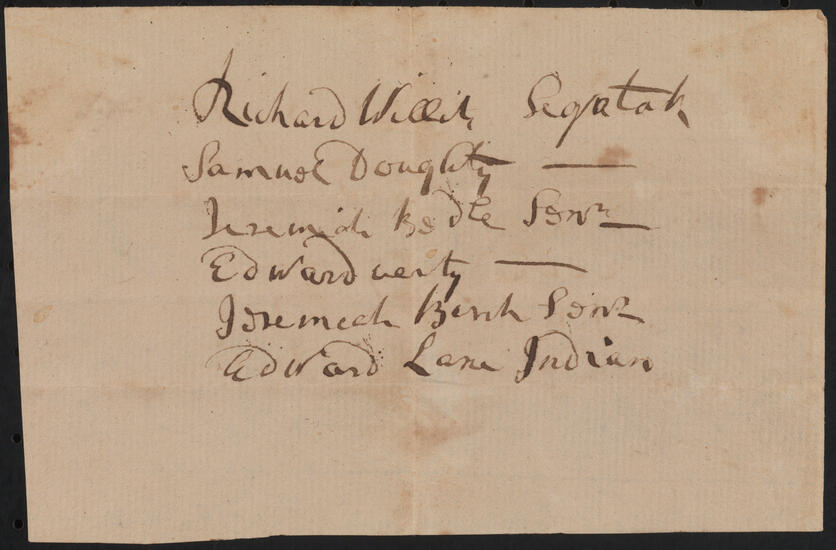 Richard Willits Seqatak
Samuel Doughty —
Jeremiah Bedle Senr —
Edward verty —
Jeremiah Birch Senr
Edward Lane Indian